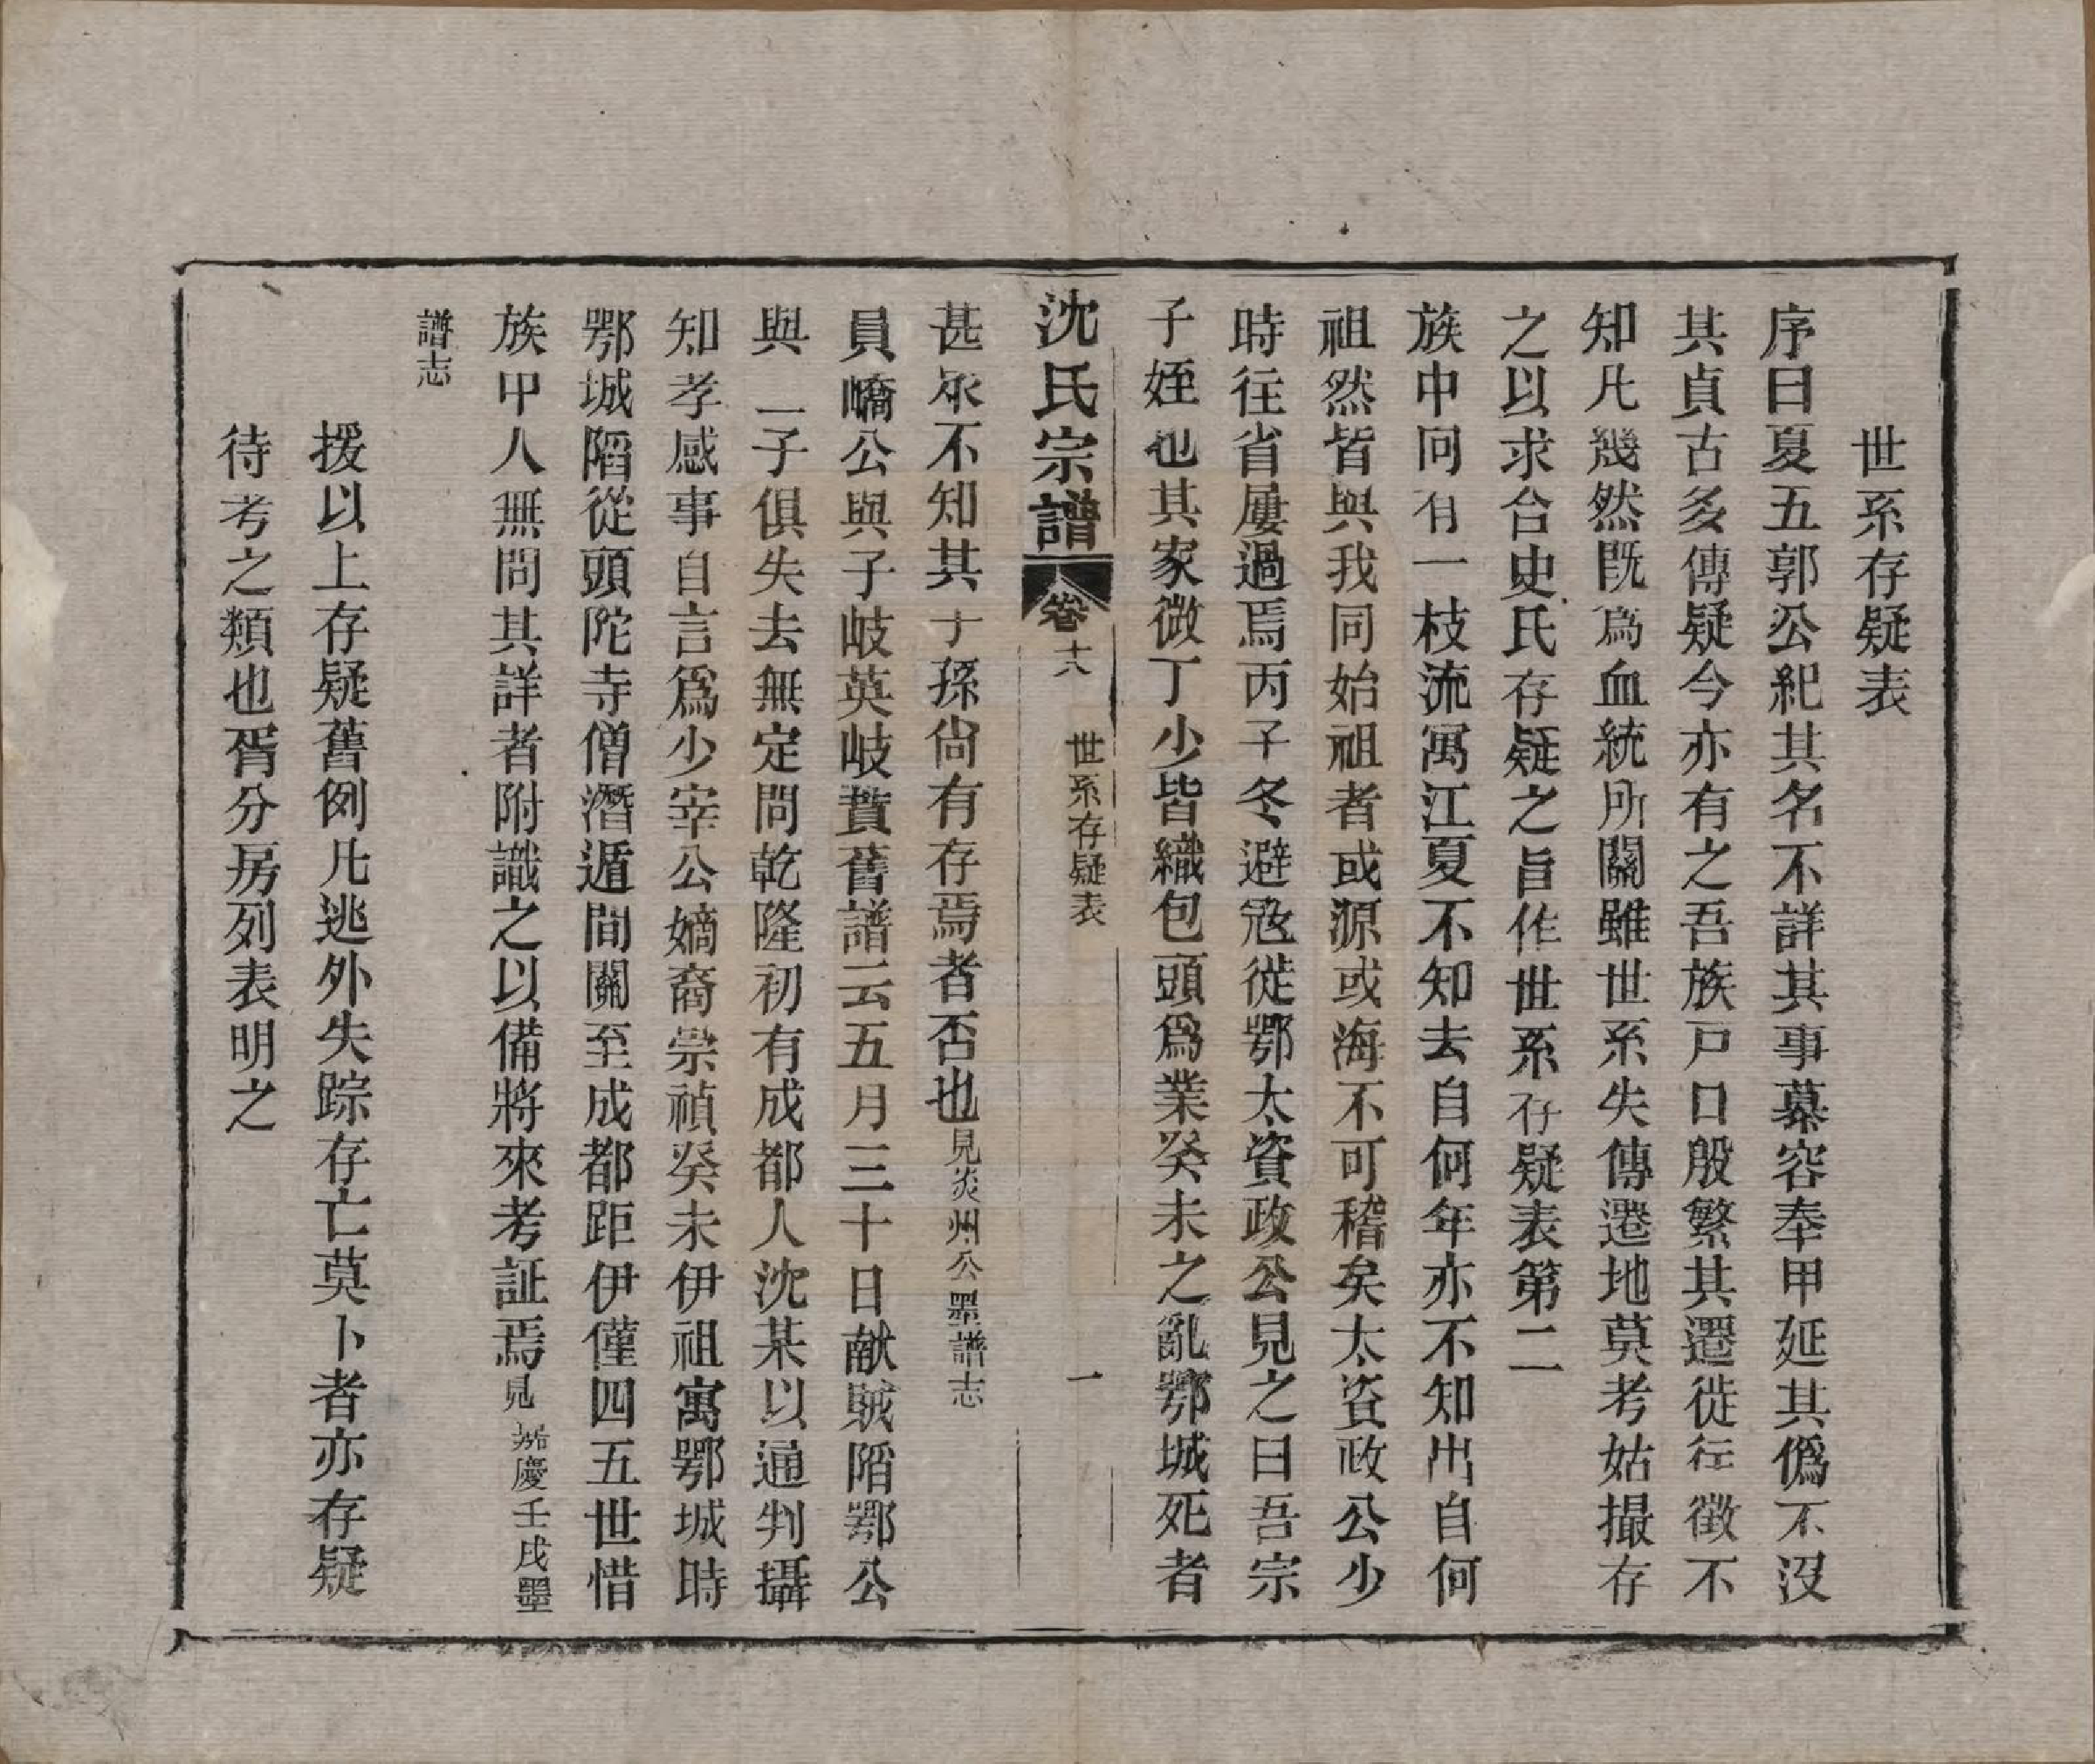 世系存疑表
序曰夏五郭公紀其名不詳其事慕容奉甲延其僞不沒
其貞古多傳疑今亦有之吾族戸口殷繁其遷徙行徵不
知凡幾然既爲血統所關雖世系失傳遷地莫考姑撮存
之以求合史氏存疑之旨作世系存疑表第二
族中同有一枝流寓江夏不知去自何年亦不知出自何
祖然皆與我同始祖者或源或海不可稽矣太資政公少
時往省屢過焉丙子冬避寇徙鄂太資政公見之曰吾宗
子姪也其家微丁少皆織包頭爲業癸未之亂鄂城死者
沈氏宗譜 卷十八 世系存疑表 一
甚眾不知其子孫尙有存焉者否也見炎州公墨譜志
員嶠公與子岐英岐贄舊譜云五月三十日献賊陷鄂公
與一子俱失去無定問乾隆初有成都人沈某以通判攝
知孝感事自言爲少宰公嫡裔崇禎癸未伊祖寓鄂城時
鄂城陷從頭陀寺僧潛遁間關至成都距伊僅四五世惜
族中人無問其詳者附識之以備將來考証焉見嘉慶壬戌墨
譜志
援以上存疑舊例凡逃外失踪存亡莫卜者亦存疑
待考之類也胥分房列表明之